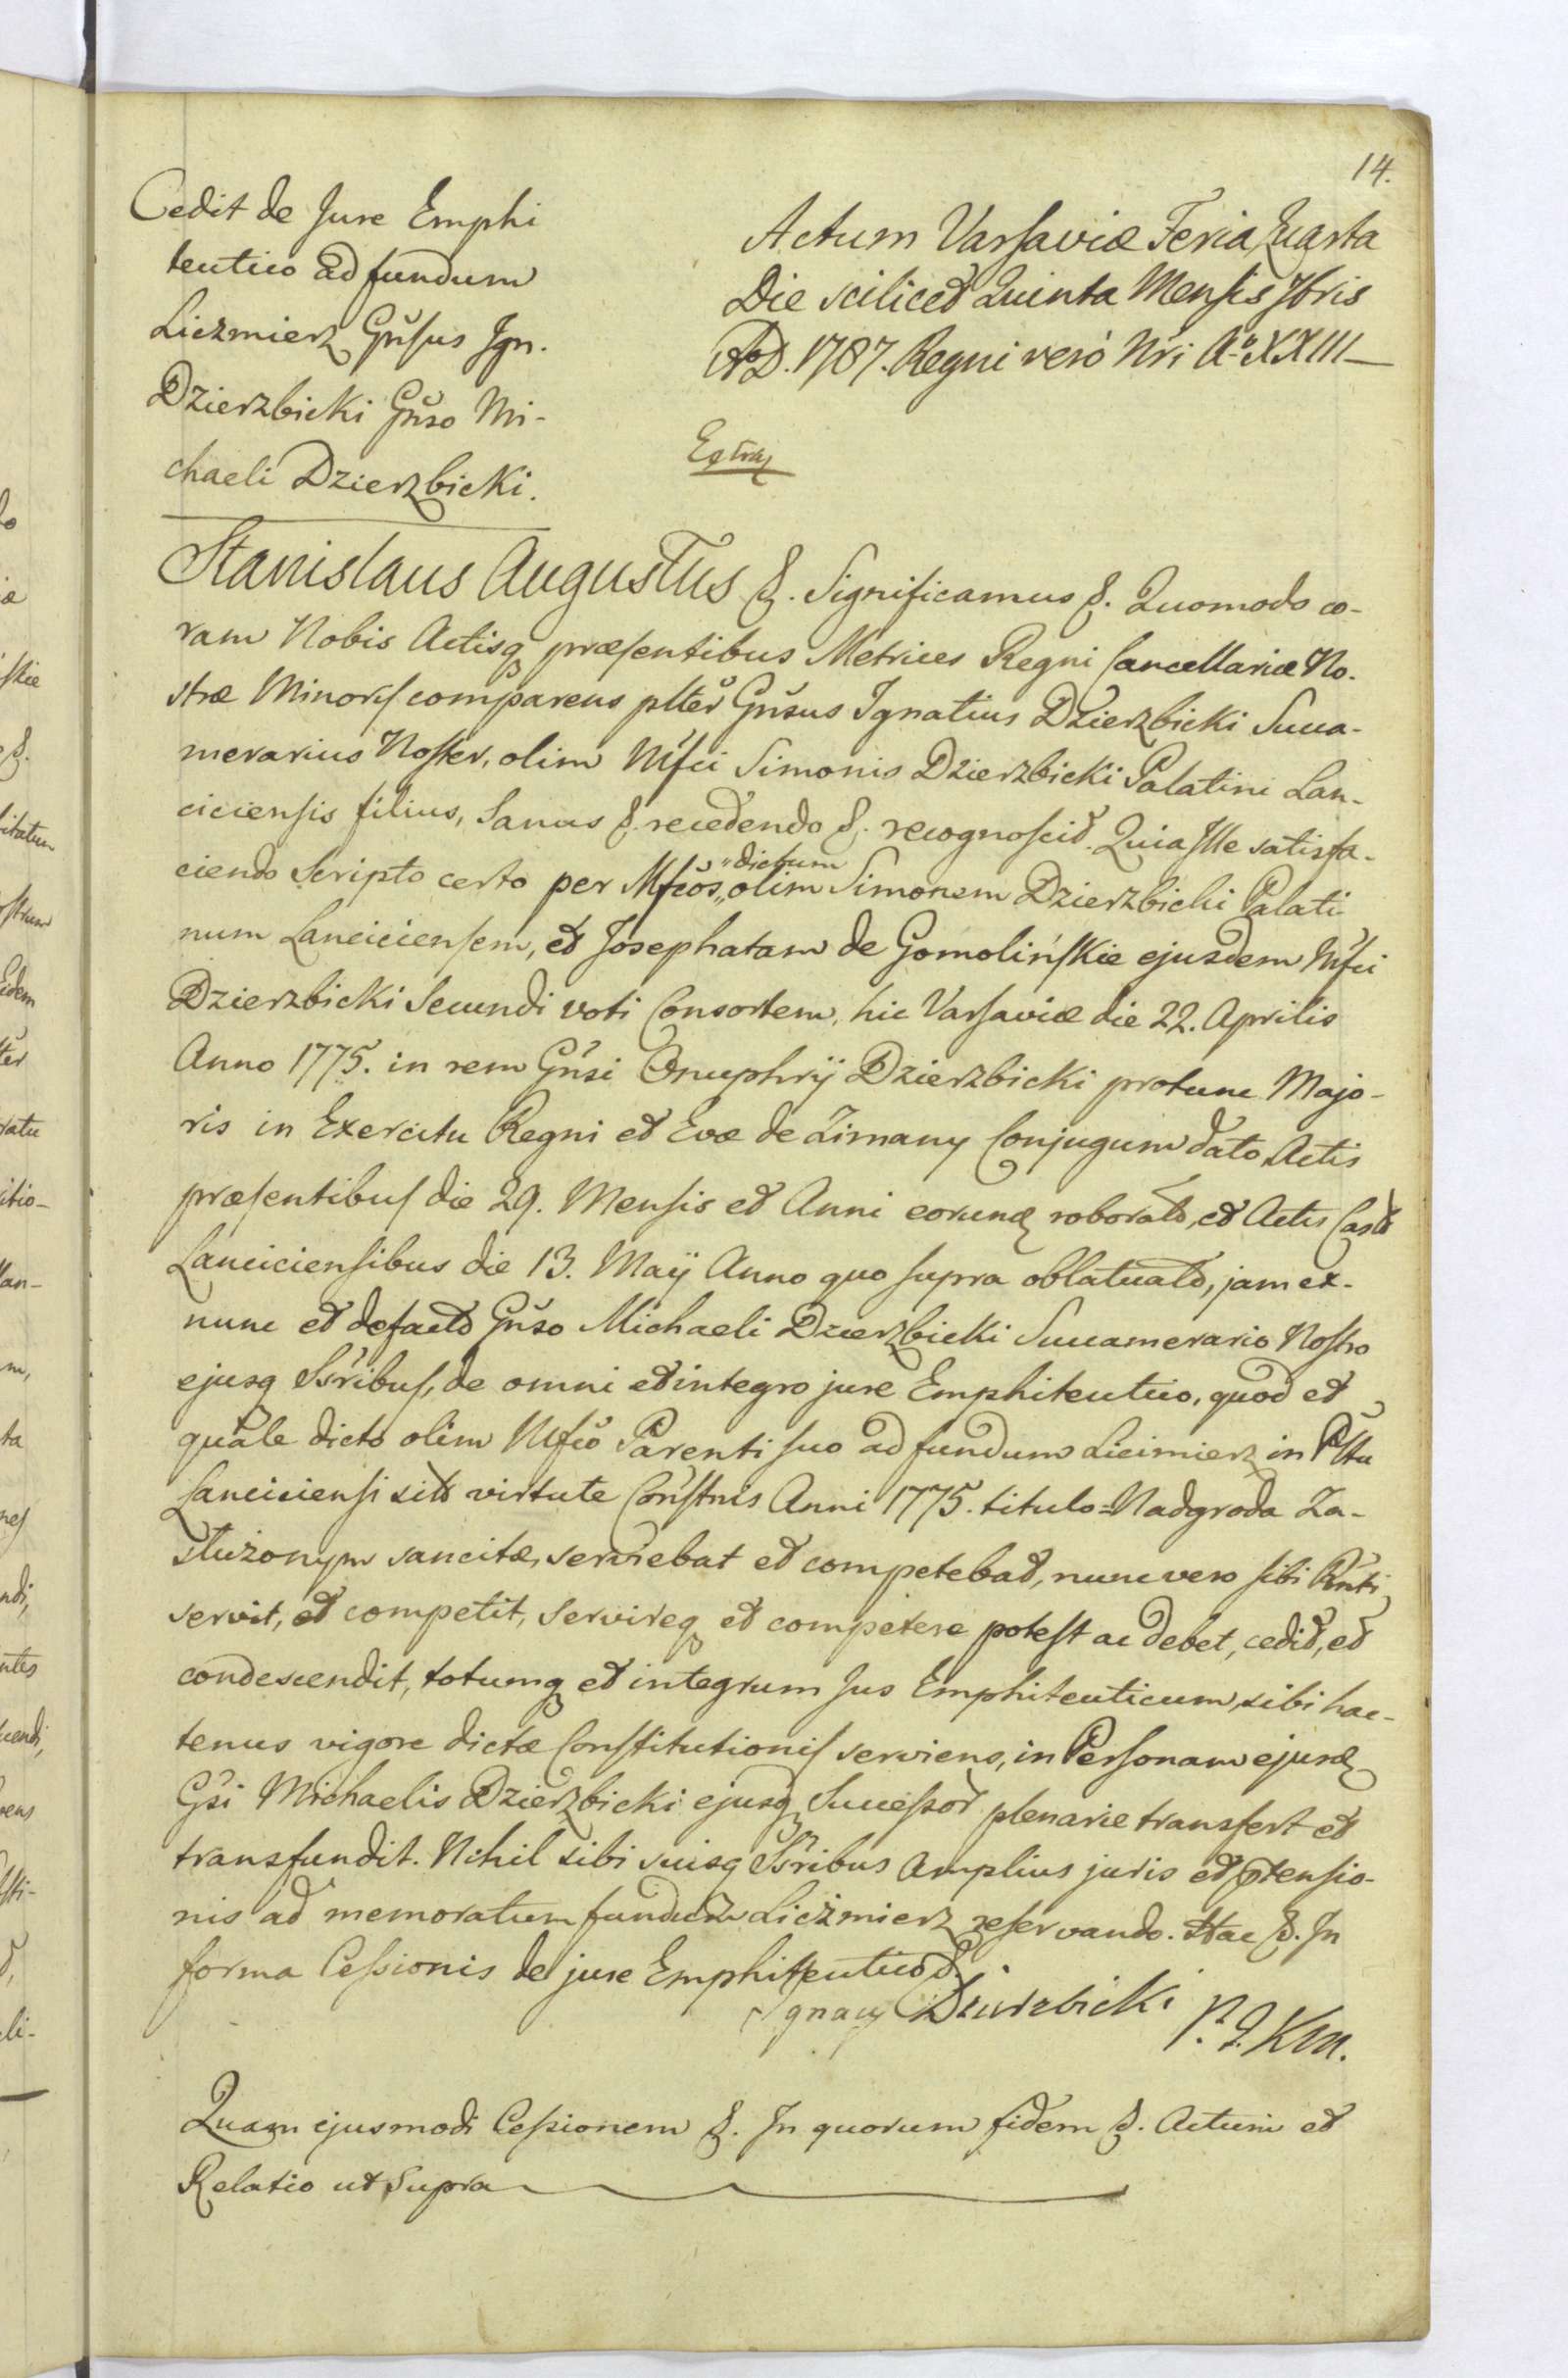 14.
Cedit de Jure Emphi
teutico ad fundum
Liczmierz Gnsus Ign.
Dzierzbicki Gnso Mi-
chaeli Dzierzbicki.
Actum Varsaviæ Feria Quarta
Die scilicet Quinta Mensis 7bris
A.D. 1787. Regni verò Nri A-o XXIII
Stanislaus Augustus &. Significamus &. Quomodo co-
ram Nobis Actisq præsentibus Metrices Regni Cancellariæ No-
stræ Minoris comparens plter Gnsus Ignatius Dzierzbicki Succa-
merarius Noster, olim Mfci Simonis Dzierzbicki Palatini Lan-
ciciensis filius, Sanus &. recedendo &. recognoscit. Quia Ille satisfa-
ciendo Scripto certo per Mfcos "dictum olim Simonem Dzierzbicki Palati-
num Lanciciensem, et Josephatam de Gomolińskie ejusdem Mfci
Dzierzbicki Secundi voti Consortem, hic Varsaviæ die 22. Aprilis
Anno 1775. in rem Gnsi Onuphrÿ Dzierzbicki protunc Majo-
ris in Exercitu Regni et Evæ de Zimany Conjugum dato, Actis
præsentibus die 29. Mensis et Anni eorund roborato, et Actis Castr
Lanciciensibus die 13. Maÿ Anno quo supra oblatuato, jam ex-
nunc et defacto Gnso Michaeli Dzierzbicki Succamerario Nostro
ejusq Ssribus, de omni et integro jure Emphiteutico, quod et
quale dicto olim Mfco Parenti suo ad fundum Licimierz in Psttu
Lanciciensi sito virtute Constnis Anni 1775. titulo=Nadgroda Za-
służonym sancitæ, serviebat et competebat, nunc vero sibi Rnti
servit, et competit, servireq et competere potest ac debet, cedit, et
condescendit, totumq et integrum Jus Emphiteuticum, sibi hac-
tenus vigore dictæ Constitutionis serviens, in Personam ejusd
Gsi Michaelis Dzierzbicki ejusq Successor plenarie transfert et
transfundit. Nihil sibi suisq Ssribus amplius juris et ptensio-
nis ad memoratum fundum Liczmierz reservando. Hac &. In
forma Cessionis de jure Emphiteutico &.
Ignacy Dzierzbicki
Quam ejusmodi Cessionem &. In quorum fidem &. Actum et
Relatio ut Supra